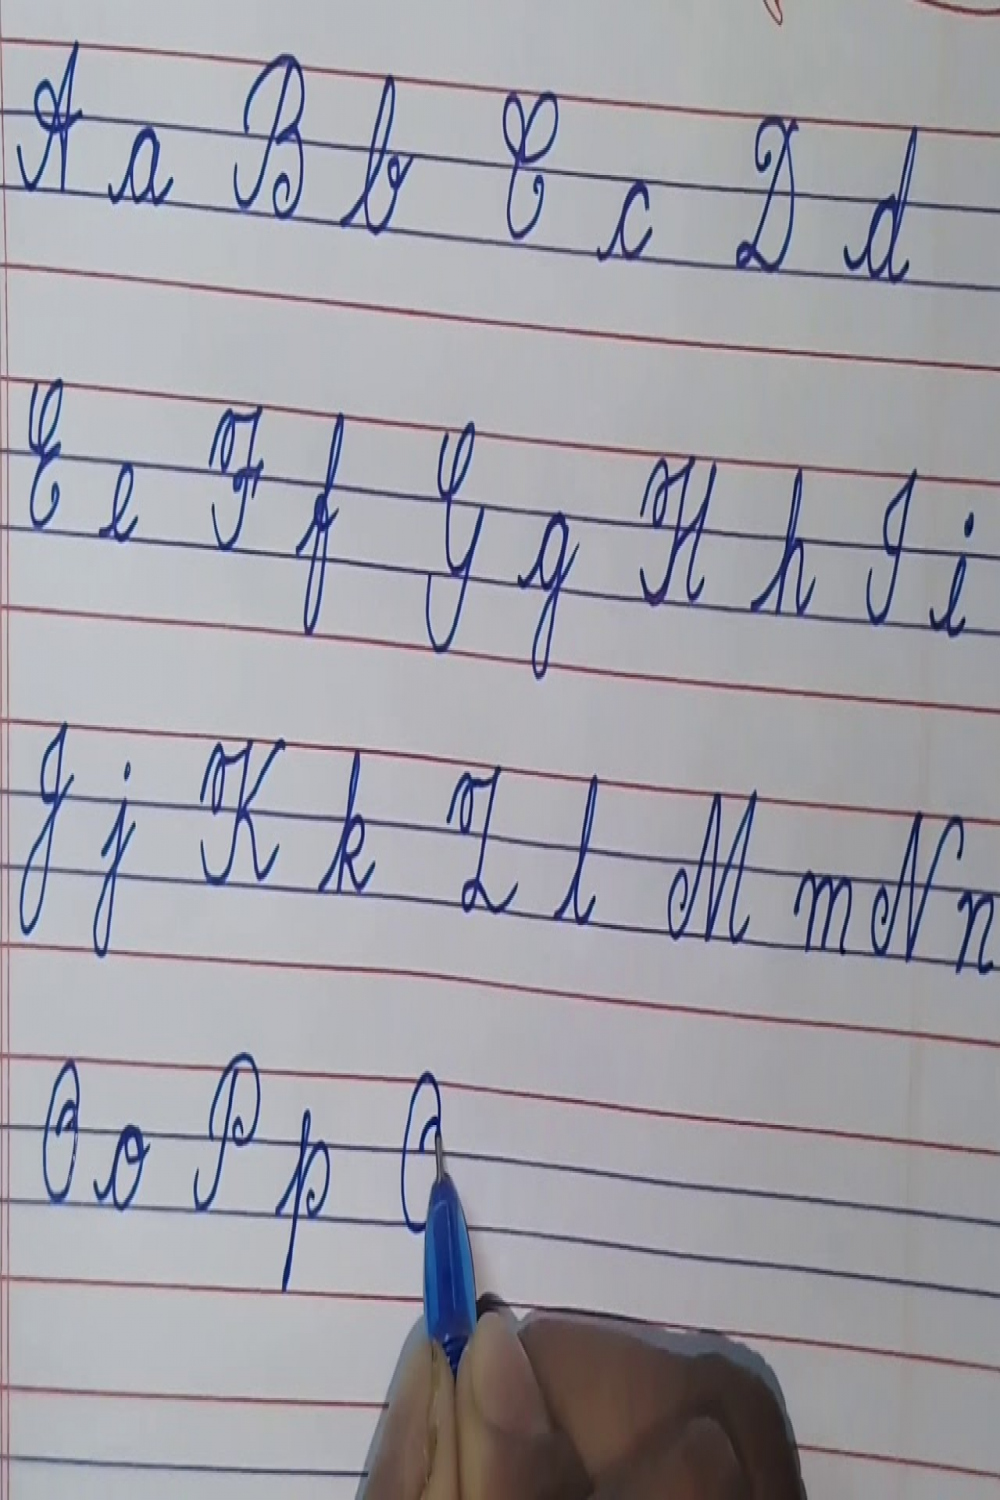 A a B b C c D d
E e F f G g H h I i
J j K k L l M m N n
O o P p